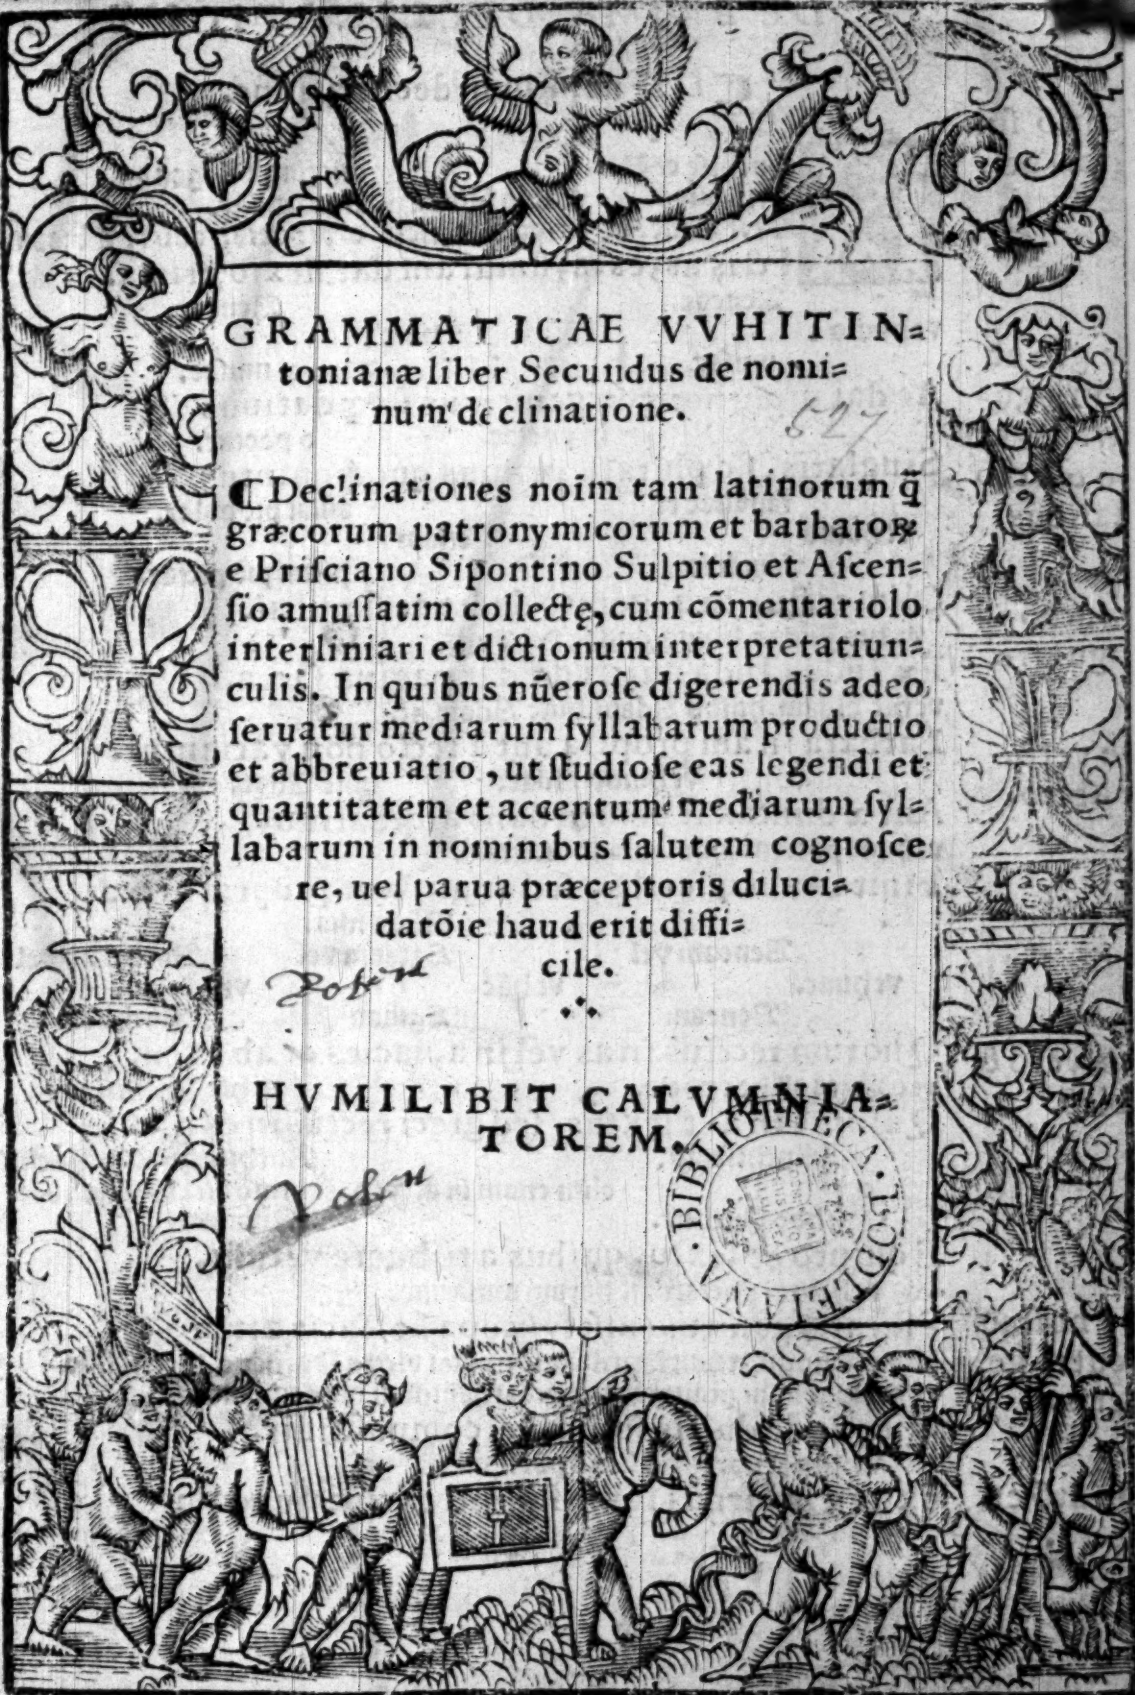 GRAMMATICAE VVHITIN=
tonianæ liber Secundus de nomi=
num declinatione.
627
¶ Declinationes noīm tam latinorum q̄
græcorum patronymicorum et barbaroꝝ
e Priſciano Sipontino Sulpitio et Aſcen=
ſio amuſſatim collectę, cum cōmentariolo
interliniari et dictionum interpretatiun=
culis. In quibus nūeroſe digerendis adeo
ſeruatur mediarum ſyllabarum productio
et abbreuiatio, ut ſtudioſe eas legendi et
quantitatem et accentum mediarum ſyl=
labarum in nominibus ſalutem cognoſce
re, uel parua præceptoris diluci=
datōie haud erit diffi=
cile.
HVMILIBIT CALVMNIA=
TOREM.
BIBLIOTHECA · BODLEIANA ·